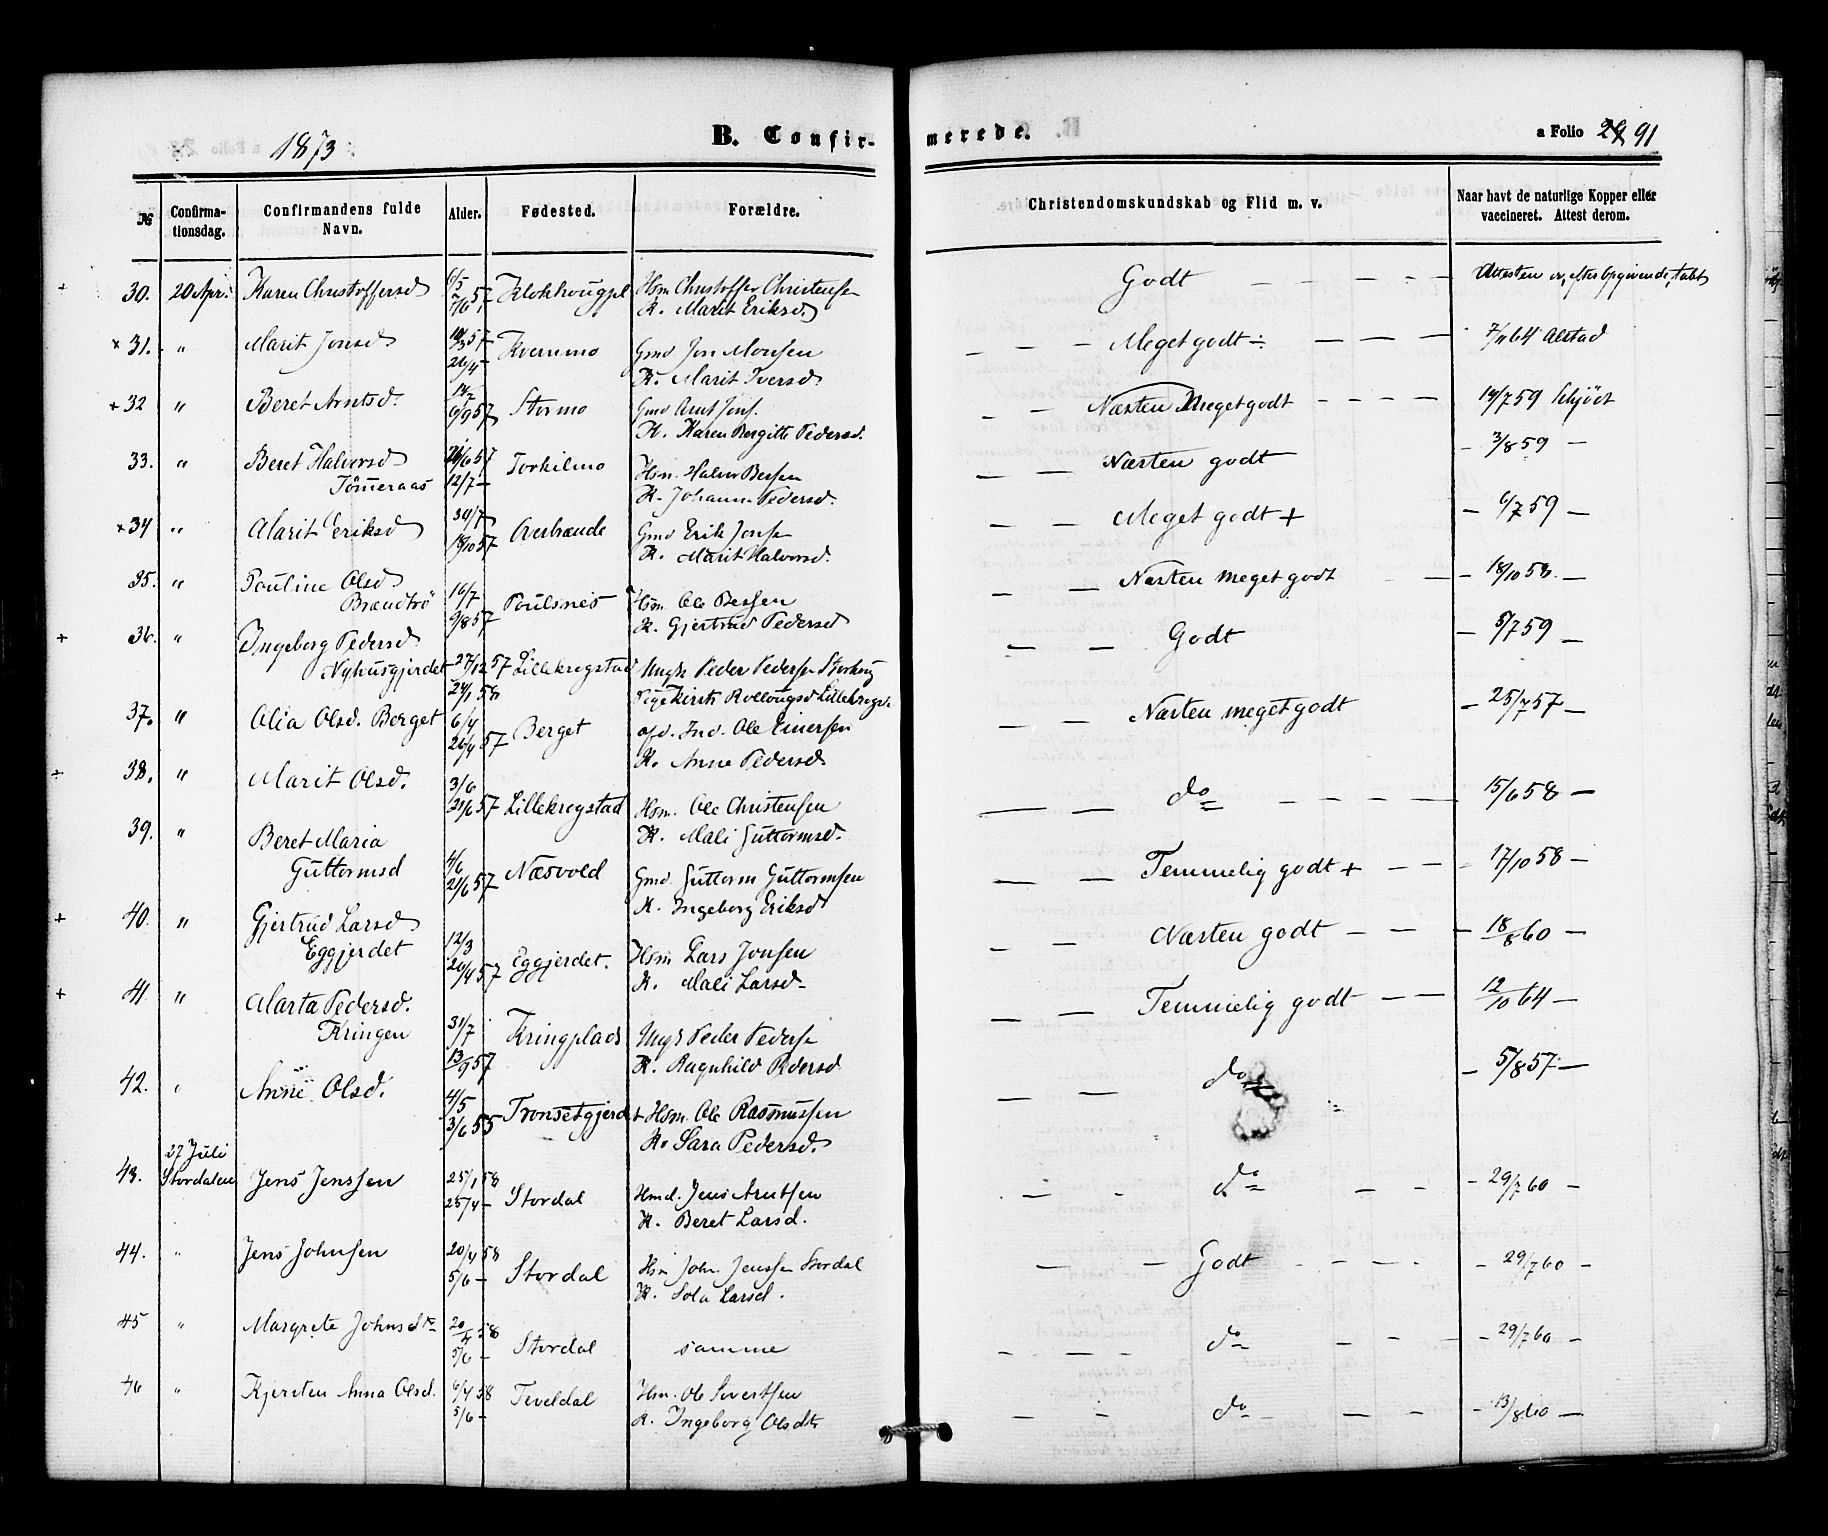 1873
B. Confirmerede.
a Folio 29 91
№ Confirmationsdag. Confirmandens fulde Navn. Alder. Fødested. Forældre. Christendomskundskab og Flid m. v. Naar havt de naturlige Kopper eller vaccineret. Attest derom.
30. 20 Apr. Karen Christoffersd 6/5 7/6 57 Klokhougpl Hsm Christoffer Christensen Godt Attesten er, efter Opgivende, tabt
K. Marit Eriksd.
+ 31. " Marit Jonsd 57 26/4 Kvernmo Gmd Jon Monsen Meget godt ÷ 7/11 64 Alstad
K. Marit Iversd
+ 32 " Beret Arntsd. 6/9 57 Stormo Gmd Arnt Jons. Næsten Meget godt 14/7 59 Schjödt
K. Karen Bergitte Pedersd.
33. " Beret Halvorsd 57 Torkilmo Hsm. Halvor Bersen Næsten godt – 3/8 59 –
Tömeraas 12/7 – K. Johanna Pedersd.
+ 34 " Marit Eriksd 30/7 18/10 57 Overbrænde Gmd Erik Jonsen Meget godt + – 6/7 59 –
K. Marit Halvorsd.
35. " Pauline Olsd 16/7 Poulsnes Hsm Ole Bersen Næsten meget godt – 18/10 58 –
Brændtrö 9/8 57 K. Gjertrud Pedersd
+ 36. " Ingeborg Pedersd Godt – 5/7 59 –
Nyhusgjerdet 27/12 57 Lillekregstad Ungk Peder Pedersen Storhoug
24/1 58 Pige Kirsti Rollougsd Lillekregst.
37. " Olia Olsd. Berget 6/4 26/4 57 Berget afd. Ind. Ole Einersen Næsten meget godt – 25/7 57 –
K. Anne Pedersd
+ 38. " Marit Olsd. 3/6 21/6 57 Lillekregstad Hsm. Ole Christensen do 15/6 58 –
K. Mali Guttormsd.
39. " Beret Maria
Guttormsd 4/6 21/6 57 Næsvold Gmd Guttorm Guttormsen Temmelig godt + 17/10 58 –
K. Ingeborg Eriksd
+ 40. " Gjertrud Larsd Næsten godt 18/8 60 –
Eggjerdet 12/3 26/4 57 Eggjerdet. Hsm Lars Jonsen
K. Mali Larsd –
+ 41. " Marta Pedersd. Temmelig godt 12/10 64 –
Kringen 31/7 13/9 57 Kringplads Ungk Peder Pedersen
K. Ragnhild Pedersd
42. " Anne Olsd. 4/5 3/6 55 Tronsetgjerdet Hsm. Ole Rasmussen do – 5/8 57 –
K. Sara Pedersd.
27 Juli
43. Stordalen Jens Jenssen 25/1 58 25/4 – Stordal Hmd. Jens Arntsen do – 29/7 60 –
K. Beret Larsd.
44. " Jens Johnsen 20/4 58 5/6 – Stordal Hsm John Jenssen Stordal Godt – 29/7 60 –
K. Sola Larsd.
45 " Margrete Johnsdtr 20/4 58 5/6 – Stordal samme do – 29/7 60 –
46 " Kjersten Anna Olsd. 6/4 58 5/6 – Teveldal Hsm. Ole Sivertsen do – 13/8 60 –
K. Ingeborg Olsdtr